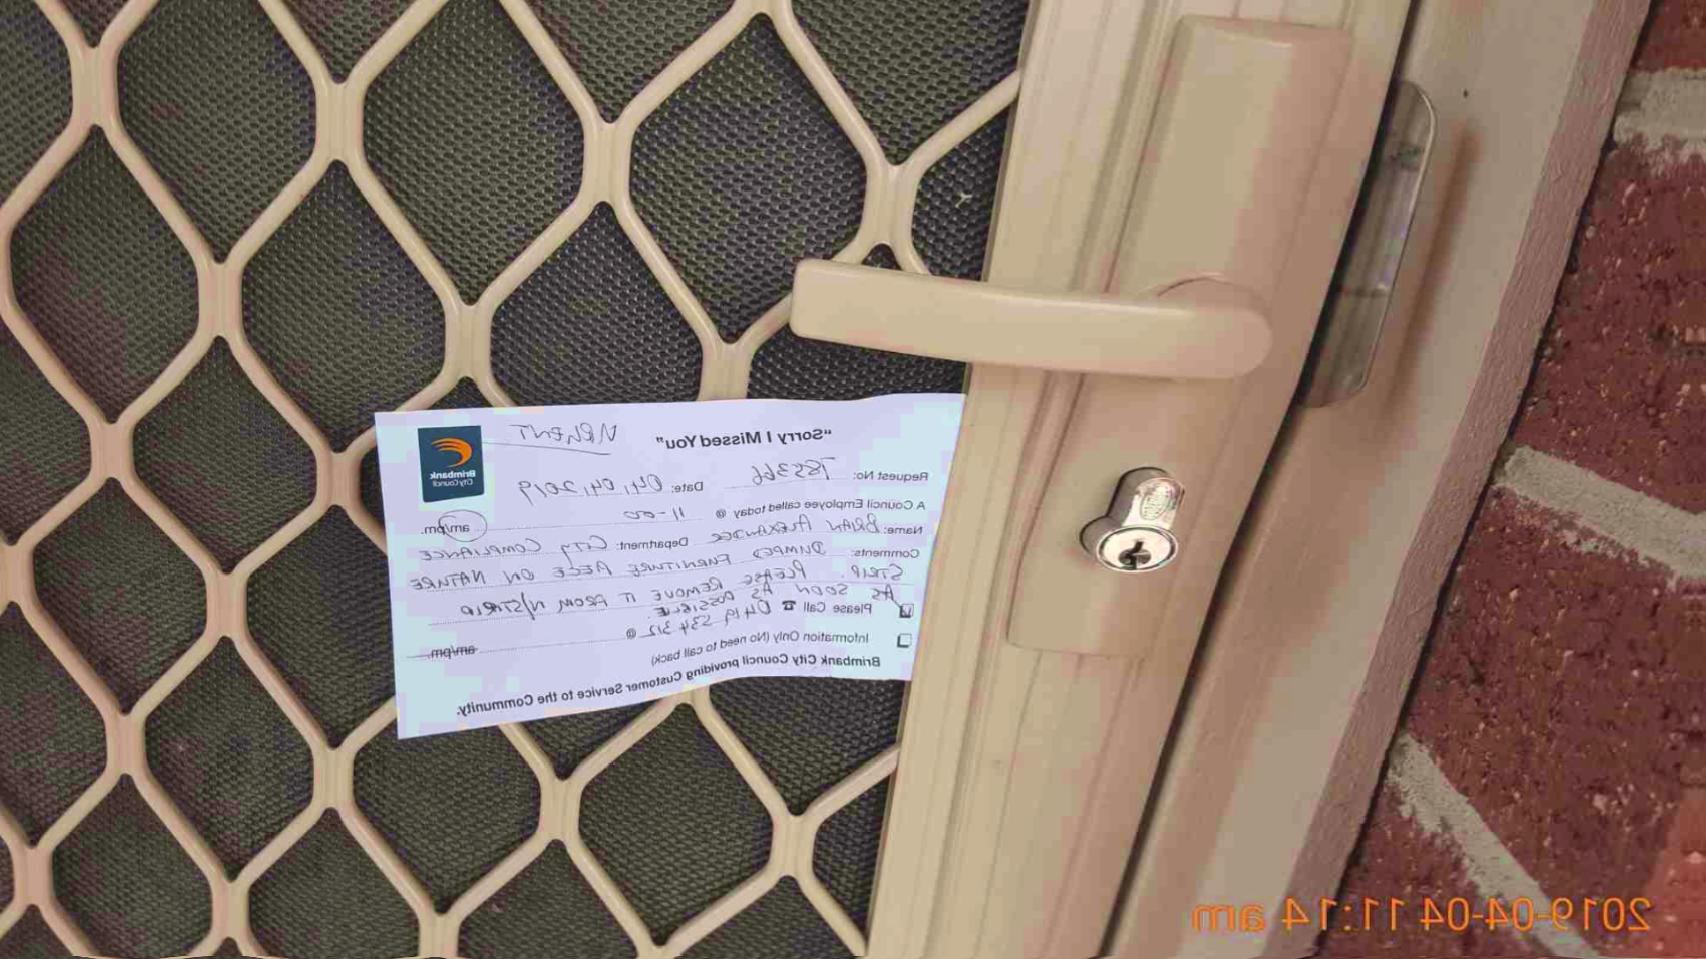 "Sorry I Missed You" URGENT
Brimbank
City Council
Request No: 785366 Date: 04, 04, 2019
A Council Employee called today @ 11-00 am/pm.
Name: BRIAN ALEXANDER Department: CITY COMPLIANCE
Comments: DUMPED FURNITURE ON NATURE
STRIP. PLEASE REMOVE IT FROM N/STRIP
AS SOON AS POSSIBLE.
Please Call ☎ 0419 534 312 @ am/pm.
Information Only (No need to call back)
Brimbank City Council providing Customer Service to the Community.
2019-04-04 11:14 am